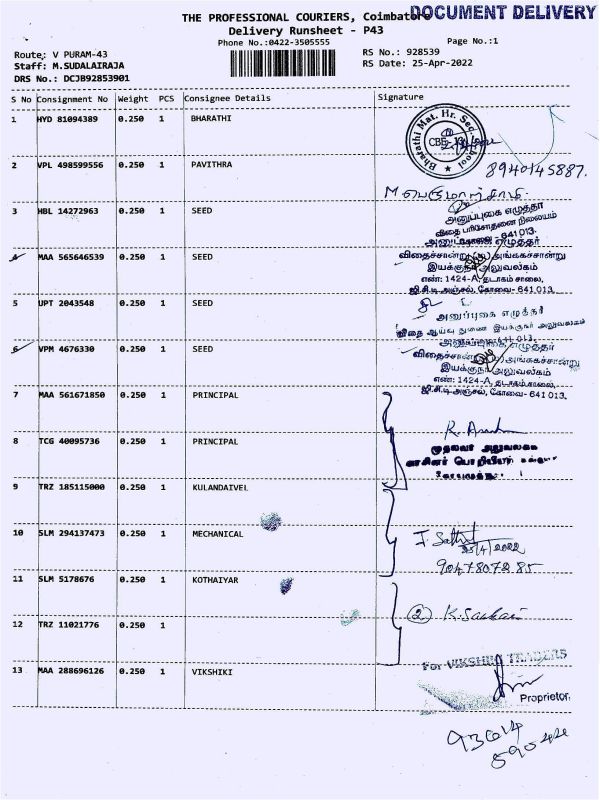 DOCUMENT DELIVERY
THE PROFESSIONAL COURIERS, Coimbatore
Delivery Runsheet - P43
Phone No.:0422-3505555
Page No.:1
Route: V PURAM-43
Staff: M.SUDALAIRAJA
DRS No.: DCJB92853901
RS No.: 928539
RS Date: 25-Apr-2022
S No Consignment No Weight PCS Consignee Details Signature
1 HYD 81094389 0.250 1 BHARATHI
Bharathi Mat. Hr. Sec. School
2 VPL 498599556 0.250 1 PAVITHRA
8940145887.
3 HBL 14272963 0.250 1 SEED
அனுப்புகை எழுத்தர்
விதை பரிசோதனை நிலையம்
641 013.
4 MAA 565646539 0.250 1 SEED
எழுத்தர்
விதைச்சான்று அங்ககச்சான்று
இயக்குநர் அலுவலகம்
எண்: 1424-A, தடாகம் சாலை,
ஜி.சி.டி அஞ்சல், கோவை- 641 013.
5 UPT 2043548 0.250 1 SEED
அனுப்புகை எழுத்தர்
விதை ஆய்வு துணை இயக்குநர் அலுவலகம்
6 VPM 4676330 0.250 1 SEED
எழுத்தர்
விதைச்சான்று அங்ககச்சான்று
இயக்குநர் அலுவலகம்
எண்: 1424-A, தடாகம் சாலை,
ஜி.சி.டி அஞ்சல், கோவை- 641 013.
7 MAA 561671850 0.250 1 PRINCIPAL
8 TCG 40095736 0.250 1 PRINCIPAL
9 TRZ 185115000 0.250 1 KULANDAIVEL
10 SLM 294137473 0.250 1 MECHANICAL
25/4/2022
9047807285
11 SLM 5178676 0.250 1 KOTHAIYAR
2
12 TRZ 11021776 0.250 1
13 MAA 288696126 0.250 1 VIKSHIKI
For TRADERS
Proprietor